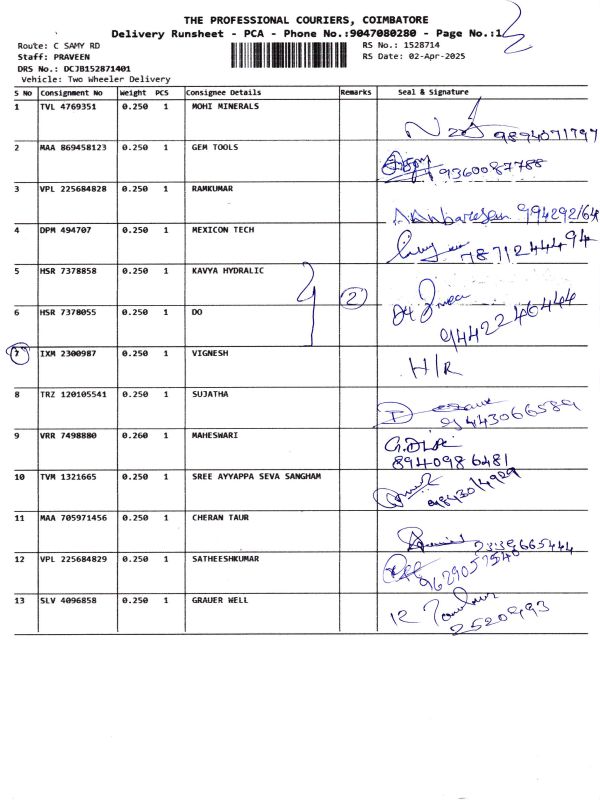 THE PROFESSIONAL COURIERS, COIMBATORE
Delivery Runsheet - PCA - Phone No.:9047080280 - Page No.:1
Route: C SAMY RD
RS No.: 1528714
Staff: PRAVEEN
RS Date: 02-Apr-2025
DRS No.: DCJB152871401
Vehicle: Two Wheeler Delivery
S No Consignment No Weight PCS Consignee Details Remarks Seal & Signature
1 TVL 4769351 0.250 1 MOHI MINERALS
9894071797
2 MAA 869458123 0.250 1 GEM TOOLS
9360087788
3 VPL 225684828 0.250 1 RAMKUMAR
4 DPM 494707 0.250 1 MEXICON TECH
7871244494
5 HSR 7378858 0.250 1 KAVYA HYDRALIC
2
6 HSR 7378055 0.250 1 DO
9442240444
7 IXM 2300987 0.250 1 VIGNESH
H/R
8 TRZ 120105541 0.250 1 SUJATHA
9443066589
9 VRR 7498880 0.260 1 MAHESWARI
8940986481
10 TVM 1321665 0.250 1 SREE AYYAPPA SEVA SANGHAM
11 MAA 705971456 0.250 1 CHERAN TAUR
12 VPL 225684829 0.250 1 SATHEESHKUMAR
13 SLV 4096858 0.250 1 GRAUER WELL
2520993